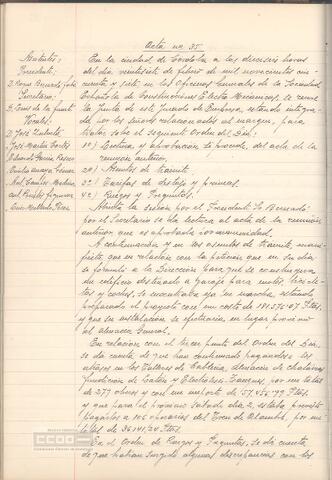 Acta nº 35.
Asistentes:
Presidente:
Secretario:
Vocales:
D. José Zurbano
José Martín Cortés
Eduardo García
En la ciudad de Córdoba a las dieciseis horas
del día veintisiete de febrero de mil novecientos cin-
cuenta y siete en las Oficinas Generales de la Sociedad
Española de Construcciones Electro Mecánicas, se reune
la Junta de este Jurado de Empresa, estando integra-
da por los señores relacionados al margen, para
tratar sobre el siguiente Orden del Día:
1º) Lectura y aprobación si procede, del acta de la
reunión anterior.
2º) Asuntos de trámite
3º) Tarifas de destajo y primas.
4º) Ruegos y Preguntas.
Abierta la sesión por el Presidente Sr. Bernardo
por el Secretario se da lectura al acta de la reunión
anterior, que es aprobada por unanimidad.
A continuación y en los asuntos de trámite, mani-
fiesta, que en relación con la petición que en su día
se formuló a la Dirección para que se construyera
un edificio destinado a garaje para motos, bicicle-
tas y coches, se encontraba ya en marcha, estando
preparado el proyecto con un coste de
y que su instalación se efectuaría en lugar próximo
al almacén General.
En relación con el tercer punto del Orden del Día,
se da cuenta de que han continuado pagándose los
atrasos en los Talleres de Cablería, almacén de chatarra
fundición de Latón y Electrolisis Tanques, por un total
de 279 obreros y con un importe de 157.455'99 Ptas.
y que para el próximo sábado día 2, está previsto
pagarlos a 105 operarios del Tren de Alambre, por un
total de 36.141'24 Ptas.
En el Orden de Ruegos y Preguntas, se dió cuenta
de que habían surgido algunas discrepancias con los
CCOO